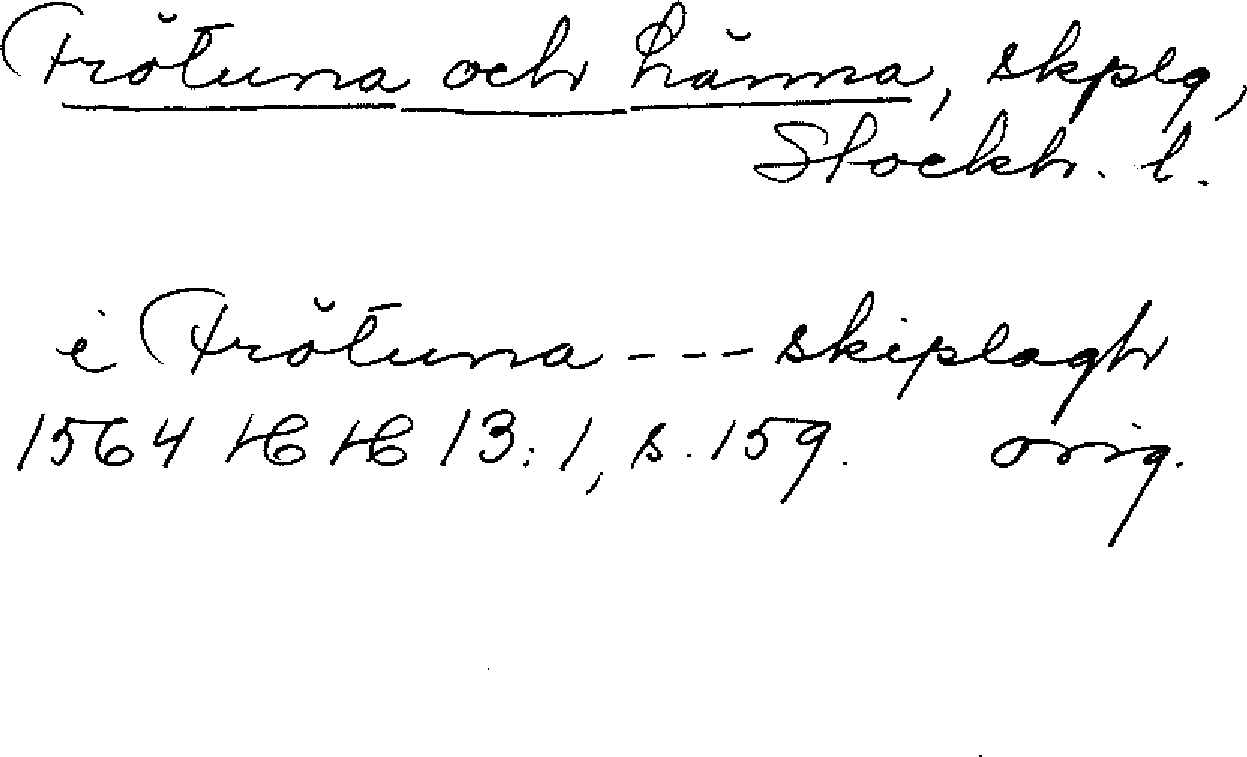 Frötuna och Länna, skplg,
Stockh. l.
i Frötuna --- skiplagh
1564 HH 13:1, s. 159. orig.